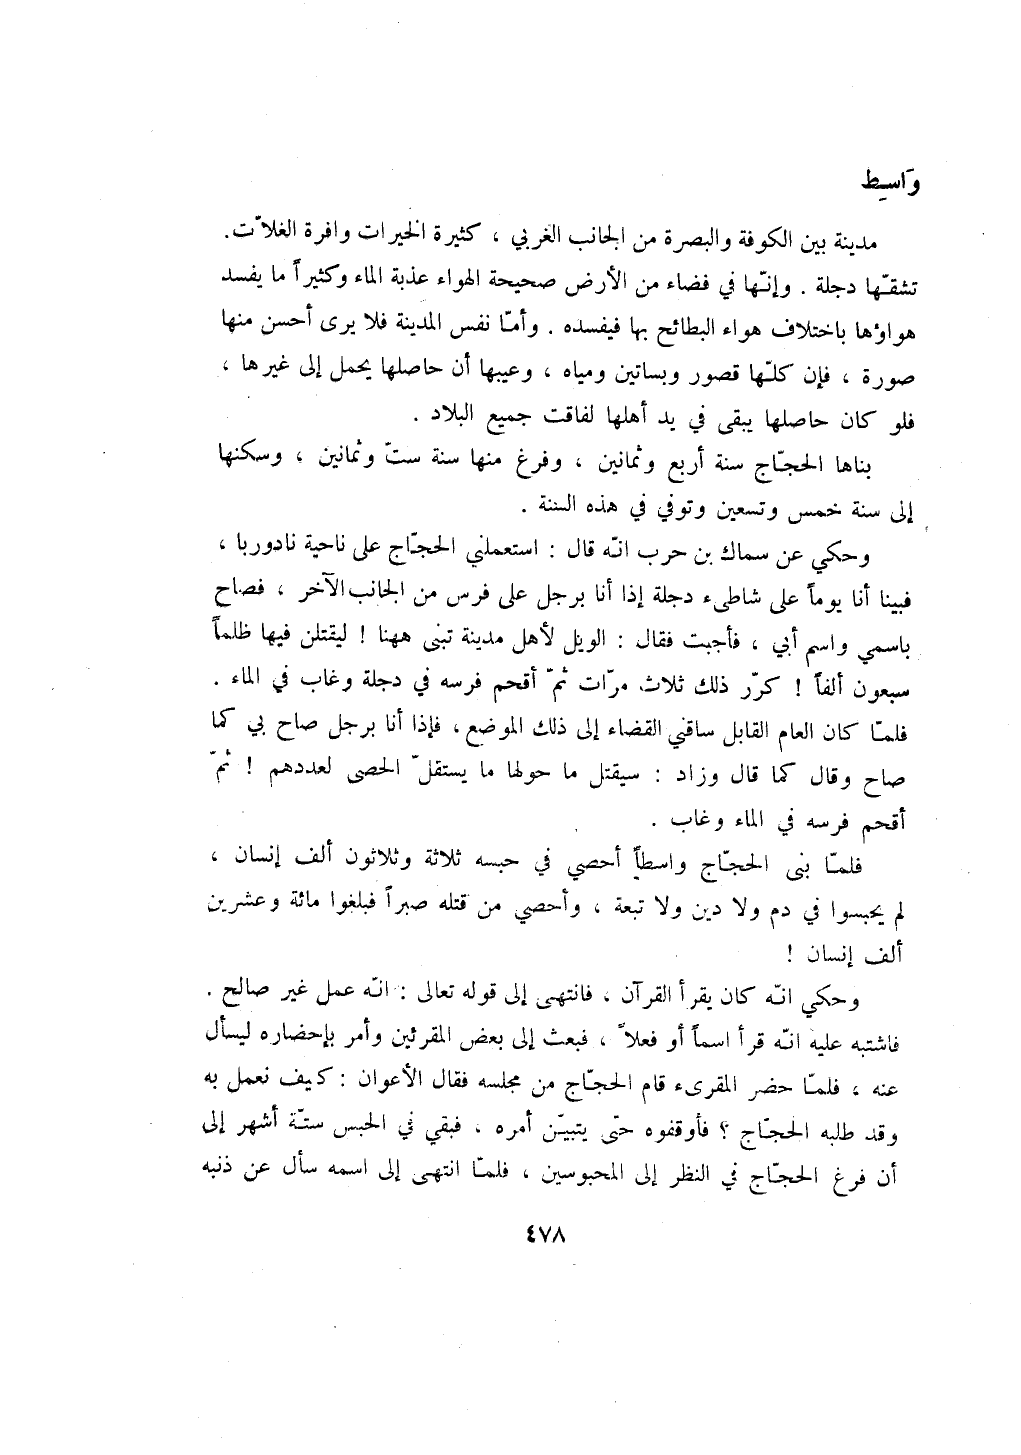 وَاسِط
مدينة بين الكوفة والبصرة من الجانب الغربي ، كثيرة الخيرات وافرة الغلاّت.
تشقّها دجلة . وإنّها في فضاء من الأرض صحيحة الهواء عذبة الماء وكثيراً ما يفسد
هواؤها باختلاف هواء البطائح بها فيفسده . وأمّا نفس المدينة فلا يرى أحسن منها
صورة ، فإن كلّها قصور وبساتين ومياه ، وعيبها أن حاصلها يحمل إلى غيرها ،
فلو كان حاصلها يبقى في يد أهلها لفاقت جميع البلاد .
بناها الحجّاج سنة أربع وثمانين ، وفرغ منها سنة ستّ وثمانين ، وسكنها
إلى سنة خمس وتسعين وتوفي في هذه السنة .
وحكي عن سماك بن حرب انّه قال : استعملني الحجّاج على ناحية نادوربا ،
فبينا أنا يوماً على شاطىء دجلة إذا أنا برجل على فرس من الجانب الآخر ، فصاح
باسمي واسم أبي ، فأجبت فقال : الويل لأهل مدينة تبنى ههنا ! ليقتلن فيها ظلماً
سبعون ألفاً ! كرّر ذلك ثلاث مرّات ثمّ أقحم فرسه في دجلة وغاب في الماء .
فلمّا كان العام القابل ساقني القضاء إلى ذلك الموضع ، فإذا أنا برجل صاح بي كما
صاح وقال كما قال وزاد : سيقتل ما حولها ما يستقلّ الحصى لعددهم ! ثمّ
أقحم فرسه في الماء وغاب .
فلمّا بنى الحجّاج واسطاً أحصي في حبسه ثلاثة وثلاثون ألف إنسان ،
لم يحبسوا في دم ولا دين ولا تبعة ، وأحصي من قتله صبراً فبلغوا مائة وعشرين
ألف إنسان !
وحكي انّه كان يقرأ القرآن ، فانتهى إلى قوله تعالى : انّه عمل غير صالح .
فاشتبه عليه انّه قرأ اسماً أو فعلاً ، فبعث إلى بعض المقرئين وأمر بإحضاره ليسأل
عنه ، فلمّا حضر المقرىء قام الحجّاج من مجلسه فقال الأعوان : كيف نعمل به
وقد طلبه الحجّاج ؟ فأوقفوه حتى يتبيّن أمره ، فبقي في الحبس ستّة أشهر إلى
أن فرغ الحجّاج في النظر إلى المحبوسين ، فلمّا انتهى إلى اسمه سأل عن ذنبه
٤٧٨